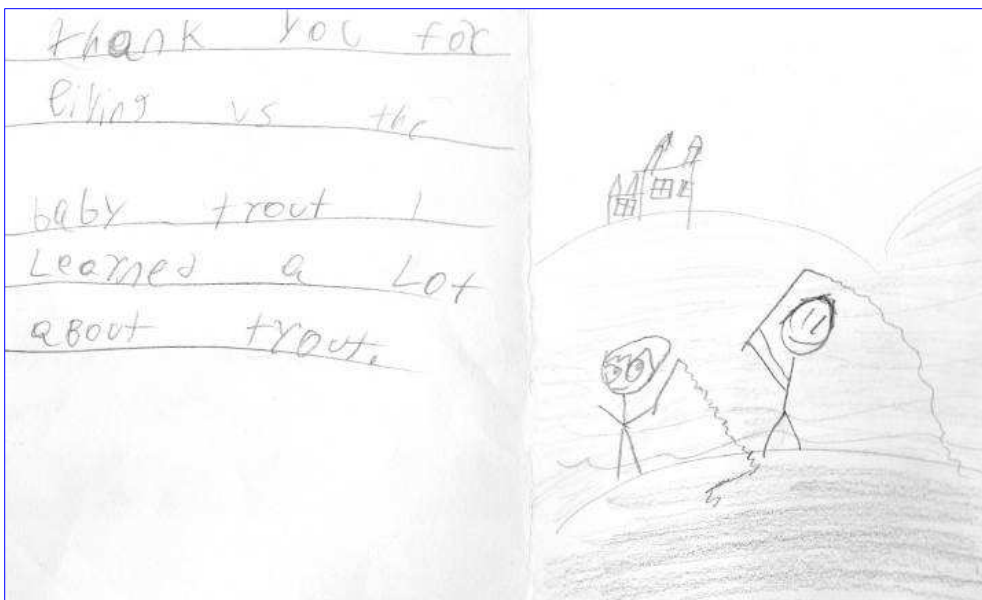 thank you for
giving us the
baby trout I
Learned a Lot
aBout trout.